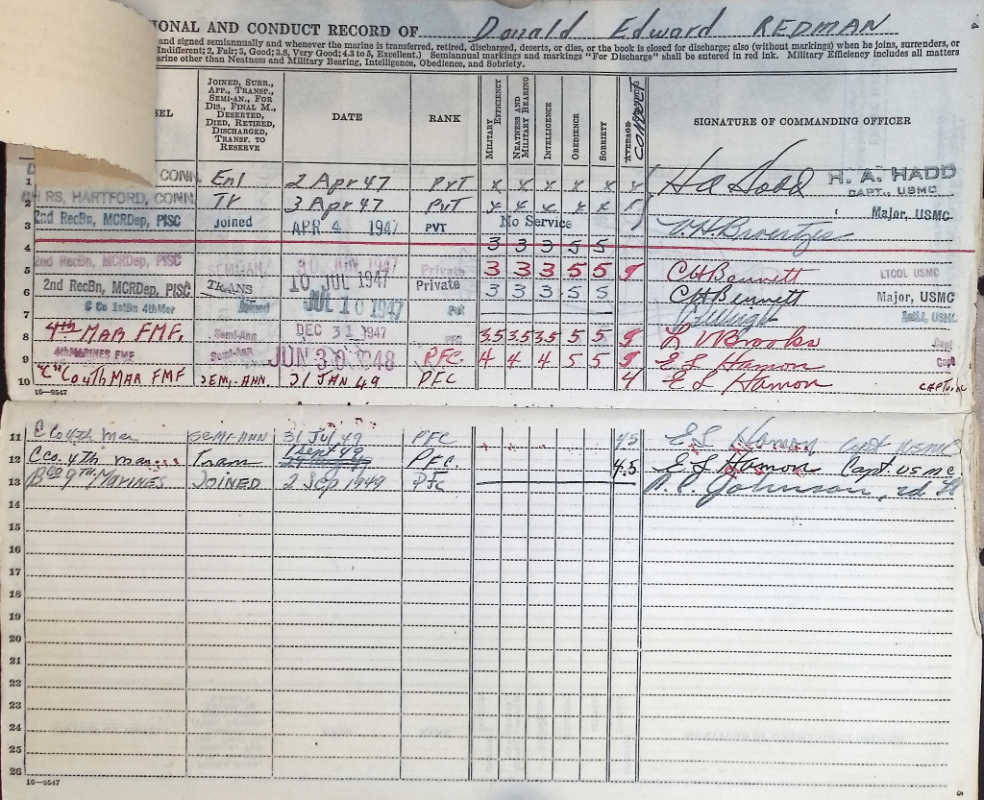 IONAL AND CONDUCT RECORD OF Donald Edward REDMAN
and signed semiannually and whenever the marine is transferred, retired, discharged, deserts, or dies, or the book is closed for discharge; also (without markings) when he joins, surrenders, or
Indifferent; 2, Fair; 3, Good; 3.8, Very Good; 4.3 to 5, Excellent.) Semiannual markings and markings "For Discharge" shall be entered in red ink. Military Efficiency includes all matters
arine other than Neatness and Military Bearing, Intelligence, Obedience, and Sobriety.
JOINED, SURR., APP., TRANSF., SEMI-AN., FOR DIS., FINAL M., DESERTED, DIED, RETIRED, DISCHARGED, TRANSF. TO RESERVE
DATE
RANK
MILITARY EFFICIENCY
NEATNESS AND MILITARY BEARING
INTELLIGENCE
OBEDIENCE
SOBRIETY
AVERAGE
CONDUCT
SIGNATURE OF COMMANDING OFFICER
1 CONN. Enl 2 Apr 47 PvT x x x x x H. A. HADD
CAPT., USMC
2 RS, HARTFORD, CONN. Tr 3 Apr 47 PvT x x x x x
3 2nd RecBn, MCRDep, PISC Joined APR 4 1947 PVT No Service Major, USMC
4 3 3 3 5 5
5 2nd RecBn, MCRDep, PISC SEMI-AN 1947 Private 3 3 3 5 5 C H Bennett LTCOL USMC
6 2nd RecBn, MCRDep, PISC TRANS 10 JUL 1947 Private 3 3 3 5 5 C H Bennett Major, USMC
7 C Co 1stBn 4thMar Joined JUL 10 1947 Pvt USMC
8 4th MAR FMF. Semi-Ann DEC 31 1947 3.5 3.5 3.5 5 5 L V Brooks Capt
9 4thMARINES FMF Semi-Ann JUN 30 1948 PFC. 4 4 4 5 5 E S Hamon Capt
10 "C" Co 4th MAR FMF SEMI-ANN. 31 JAN 49 PFC 4 E S Hamon
16—9547
11 C Co 4th Mar SEMI-ANN 31 Jul 49 PFC 4.5 E S Hamon Capt USMC
12 C co. 4th marines Tran 1 Sept 49 PFC. 4.5 E S Hamon Capt. USMC
13 B Co 9TH MARINES JOINED 2 Sep 1949 Pfc Johnson
14
15
16
17
18
19
20
21
22
23
24
25
26
16—9547